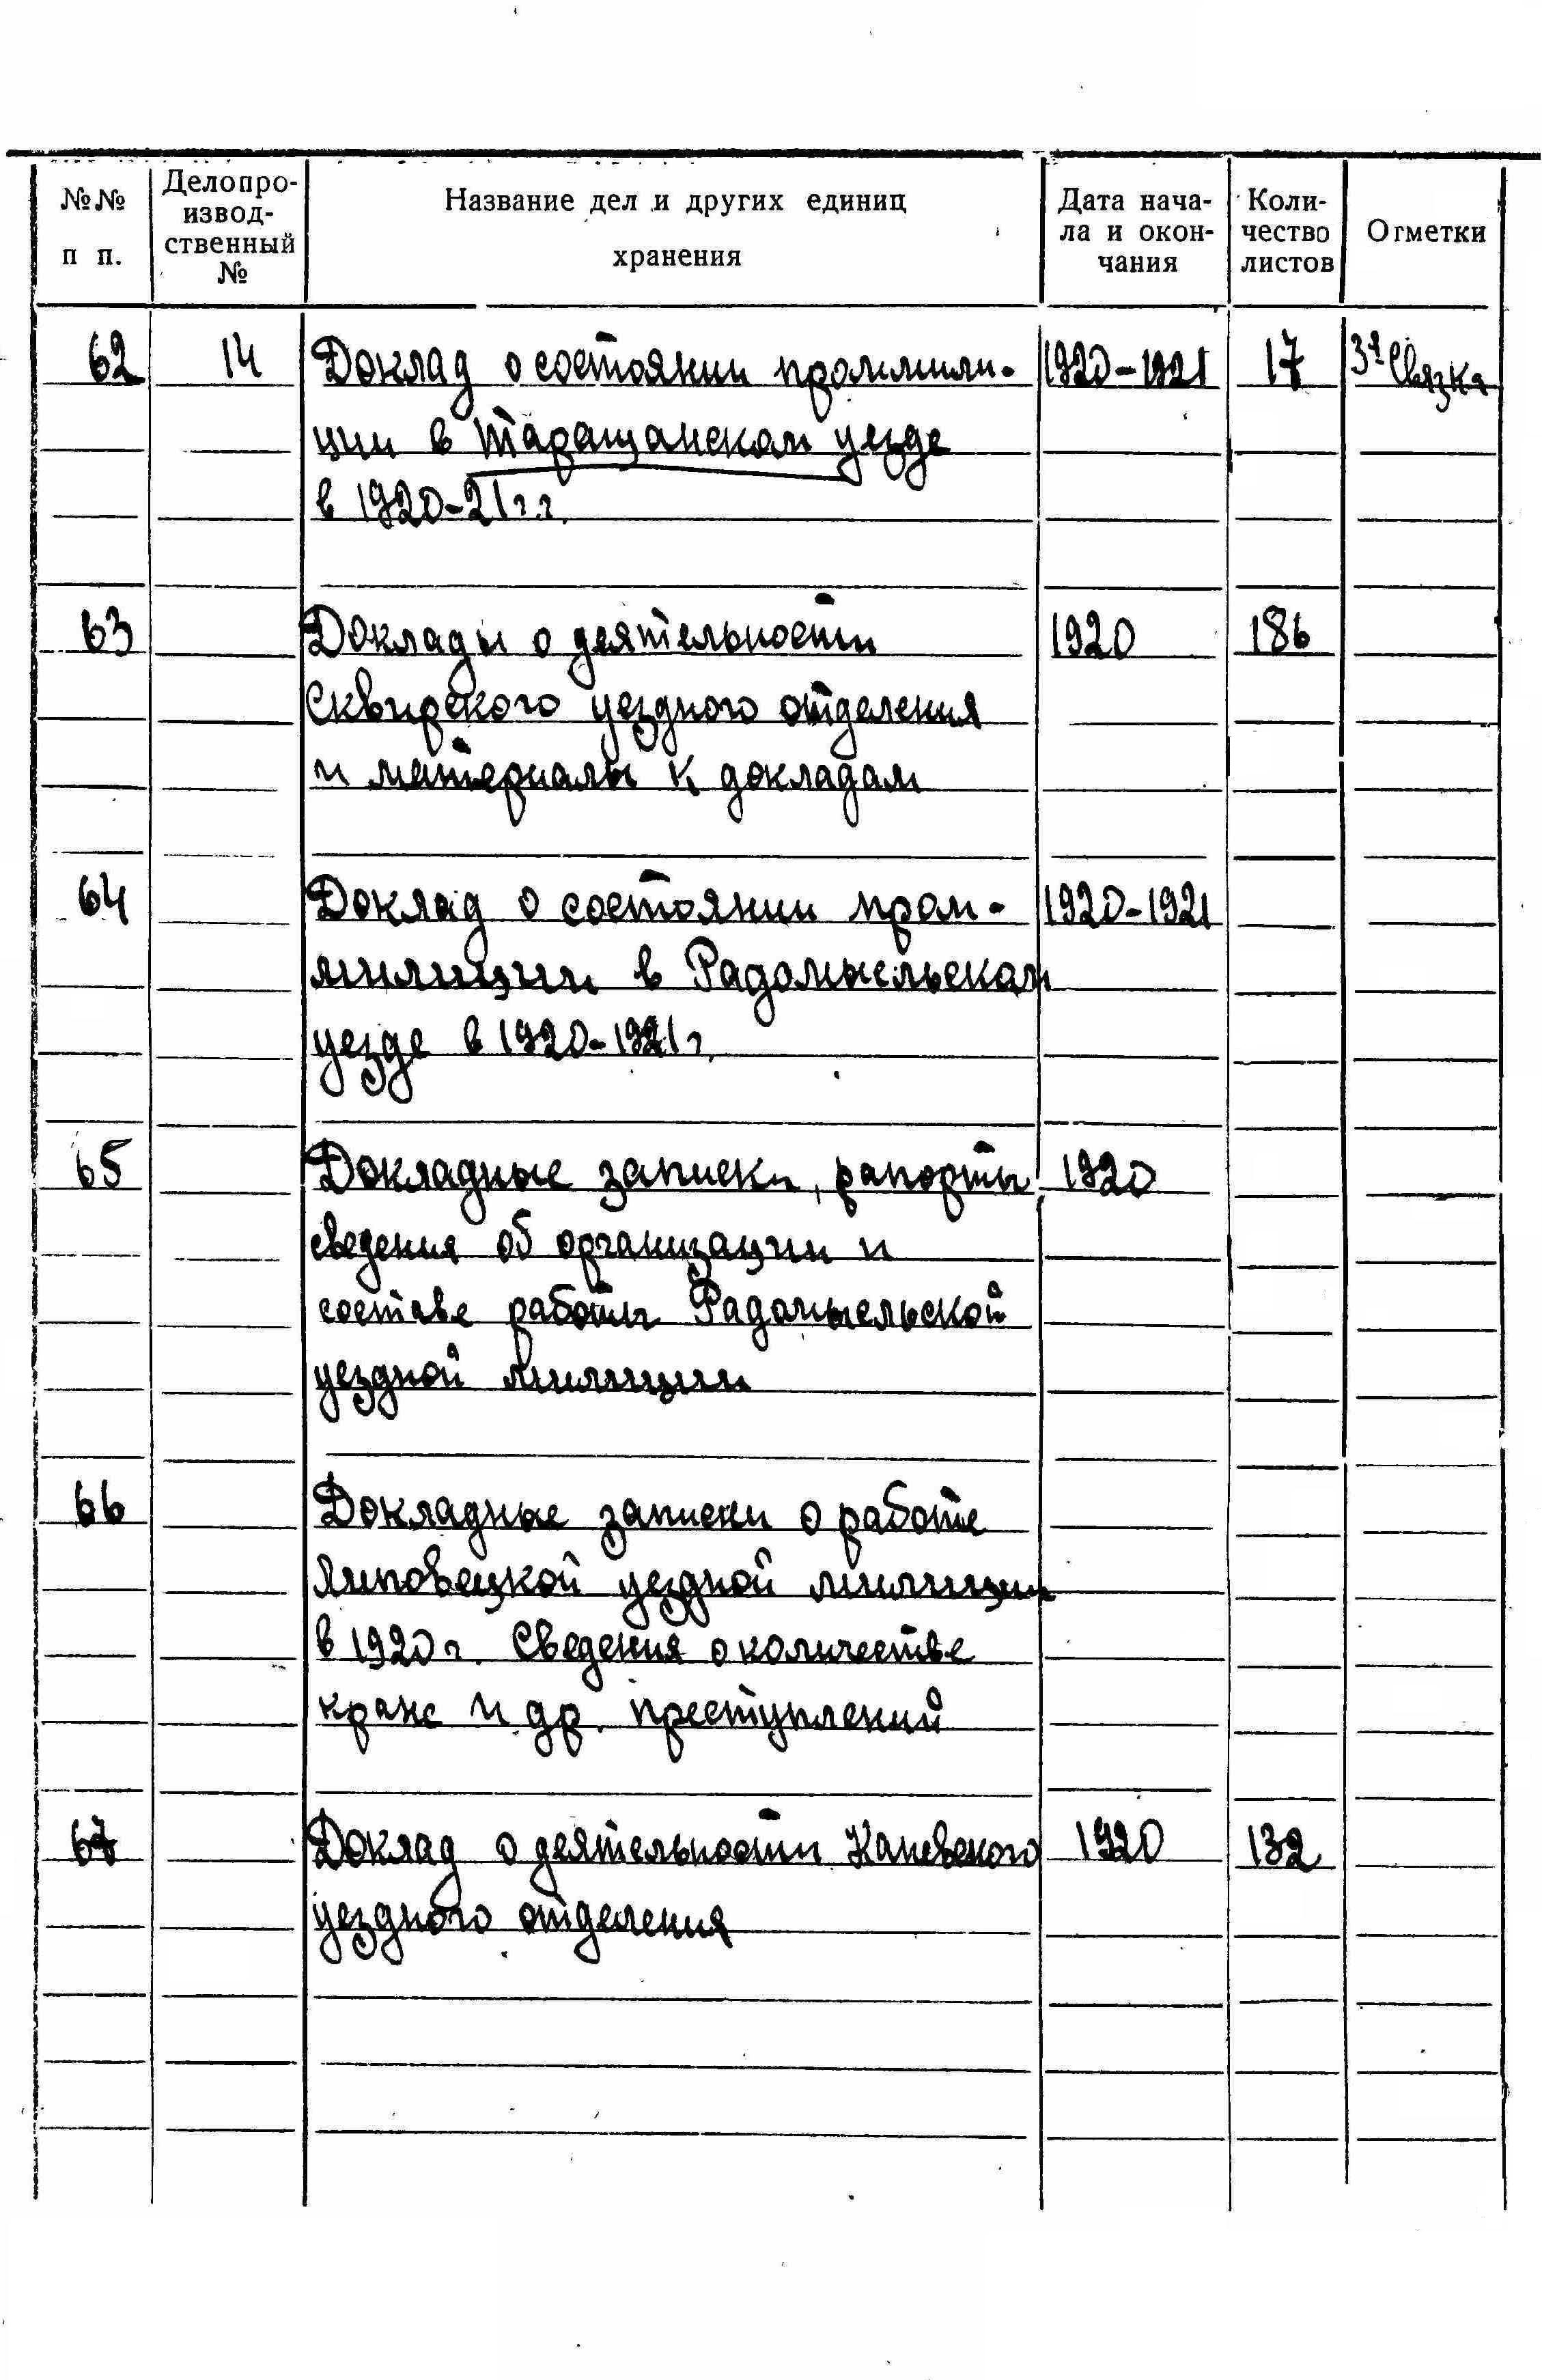 №№ п п.
Делопро-
извод-
ственный
№
Название дел и других единиц
хранения
Дата нача-
ла и окон-
чания
Коли-
чество
листов
Отметки
62 14 Доклад о состоянии проммили- 1920-1921 17 3я Связка
ции в Таращанском уезде
в 1920-21 г.г.
63 Доклады о деятельности 1920 186
Сквирского уездного отделения
и материалы к докладам
64 Доклад о состоянии пром- 1920-1921
милиции в Радомысльском
уезде в 1920-1921 г.
65 Докладные записки, рапорты, 1920
сведения об организации и
составе работы Радомысльской
уездной милиции
66 Докладные записки о работе
Липовецкой уездной милиции
в 1920 г. Сведения о количестве
краж и др. преступлений
67 Доклад о деятельности Каневского 1920 132
уездного отделения